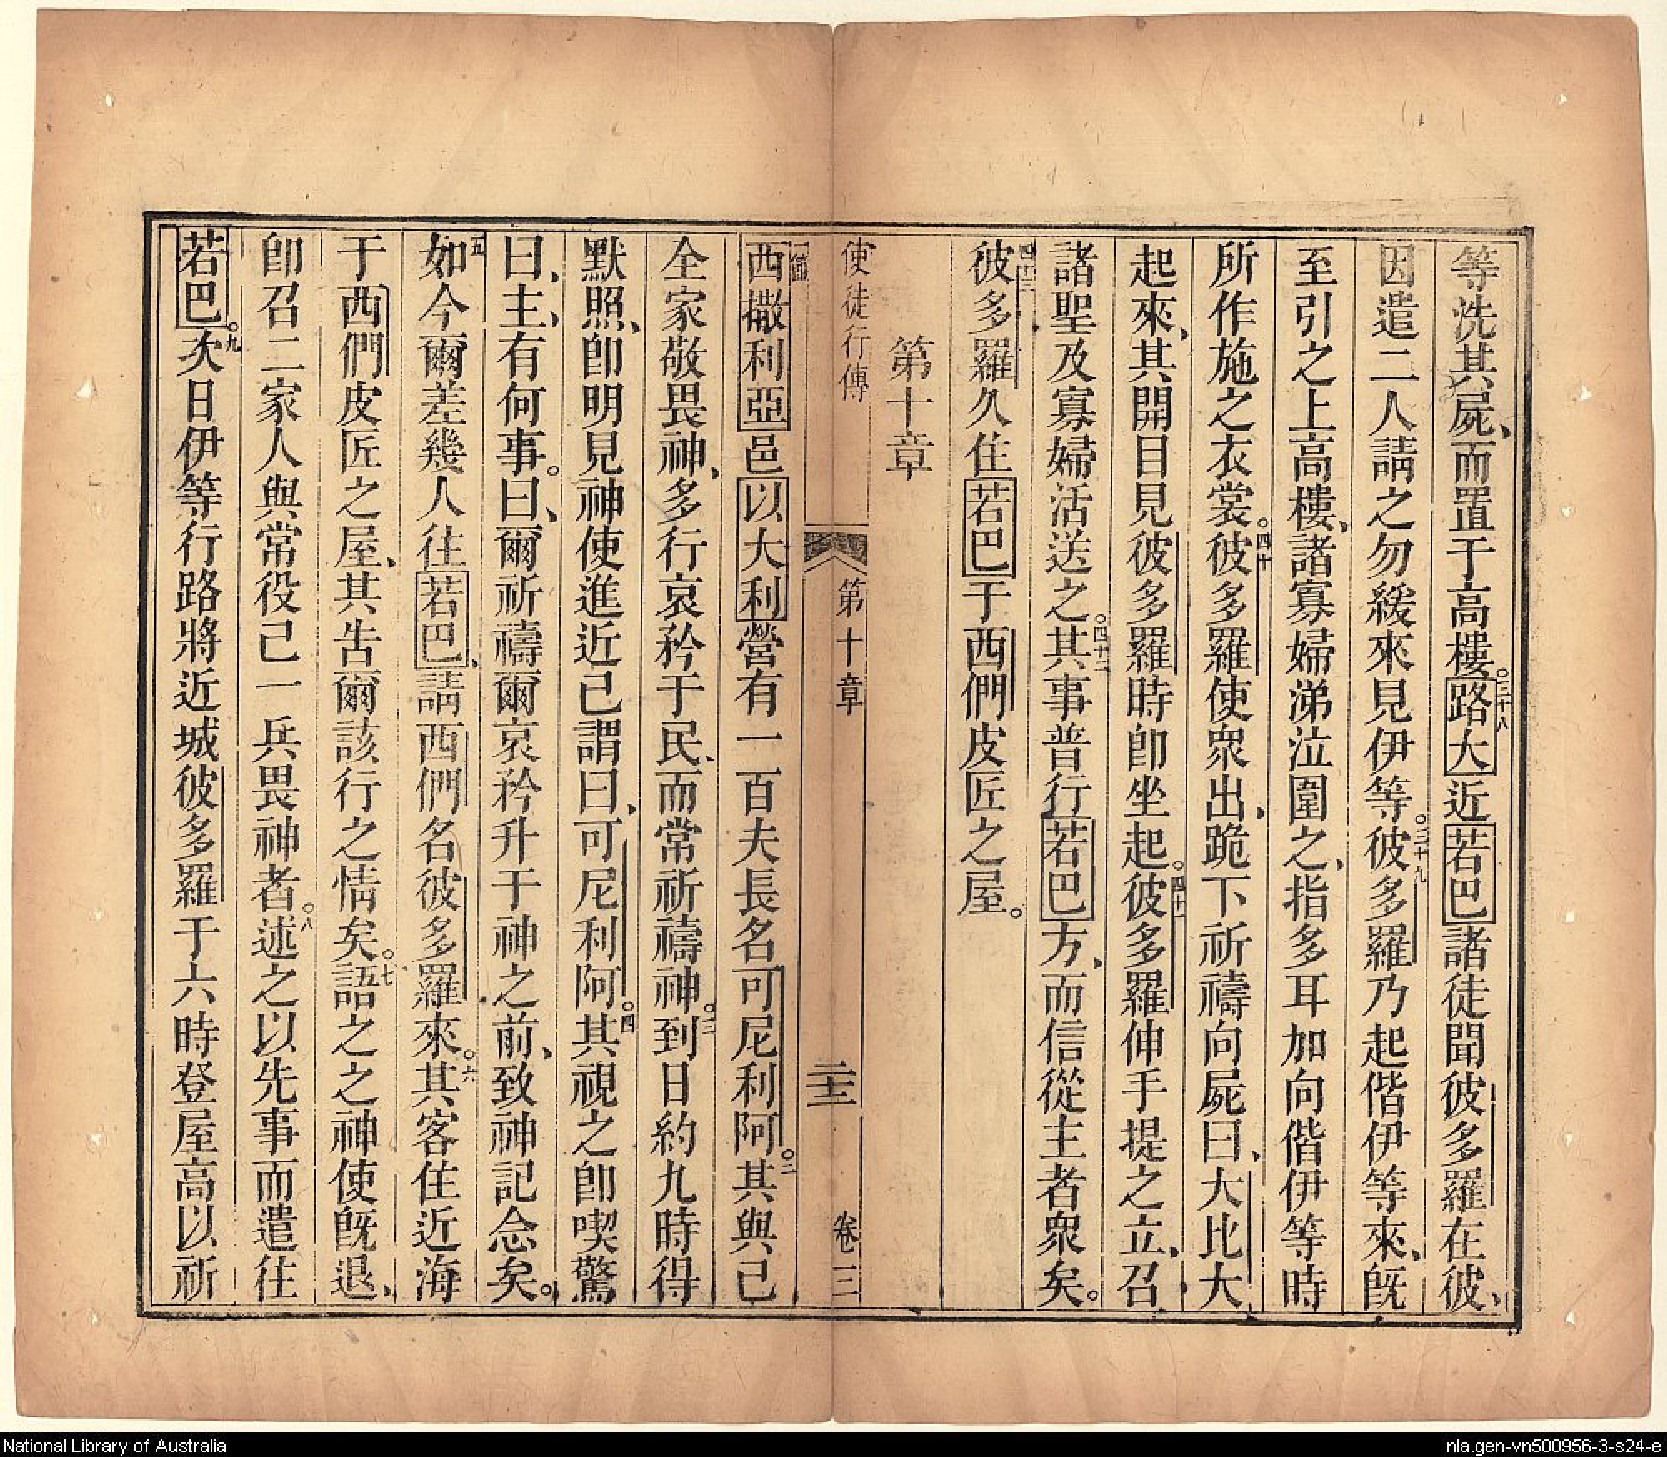 等洗其屍、而置于高樓。三十八路大近若巴諸徒聞彼多羅在彼、
因遣二人請之勿緩來見伊等。三十九彼多羅乃起偕伊等來、旣
至引之上高樓、諸寡婦涕泣圍之、指多耳加向偕伊等時
所作施之衣裳。四十彼多羅使衆出、跪下祈禱向屍曰、大比大
起來、其開目見彼多羅時卽坐起。四十一彼多羅伸手提之立、召
諸聖及寡婦活送之。四十二其事普行若巴方、而信從主者衆矣。
四十三彼多羅久住若巴于西們皮匠之屋。
第十章
使徒行傳 第十章 二十三 卷三
一節西撒利亞邑以大利營有一百夫長名可尼利阿。二其與己
全家敬畏神、多行哀矜于民、而常祈禱神。三到日約九時得
默照、卽明見神使進近己謂曰、可尼利阿。四其視之卽喫驚
曰、主、有何事。曰、爾祈禱爾哀矜升于神之前、致神記念矣。
五如今爾差幾人往若巴、請西們名彼多羅來。六其客住近海
于西們皮匠之屋、其告爾該行之情矣。七語之之神使旣退、
卽召二家人與常役己一兵畏神者。八述之以先事而遣往
若巴。九次日伊等行路將近城彼多羅于六時登屋高以祈
National Library of Australia
nla.gen-vn500956-3-s24-e